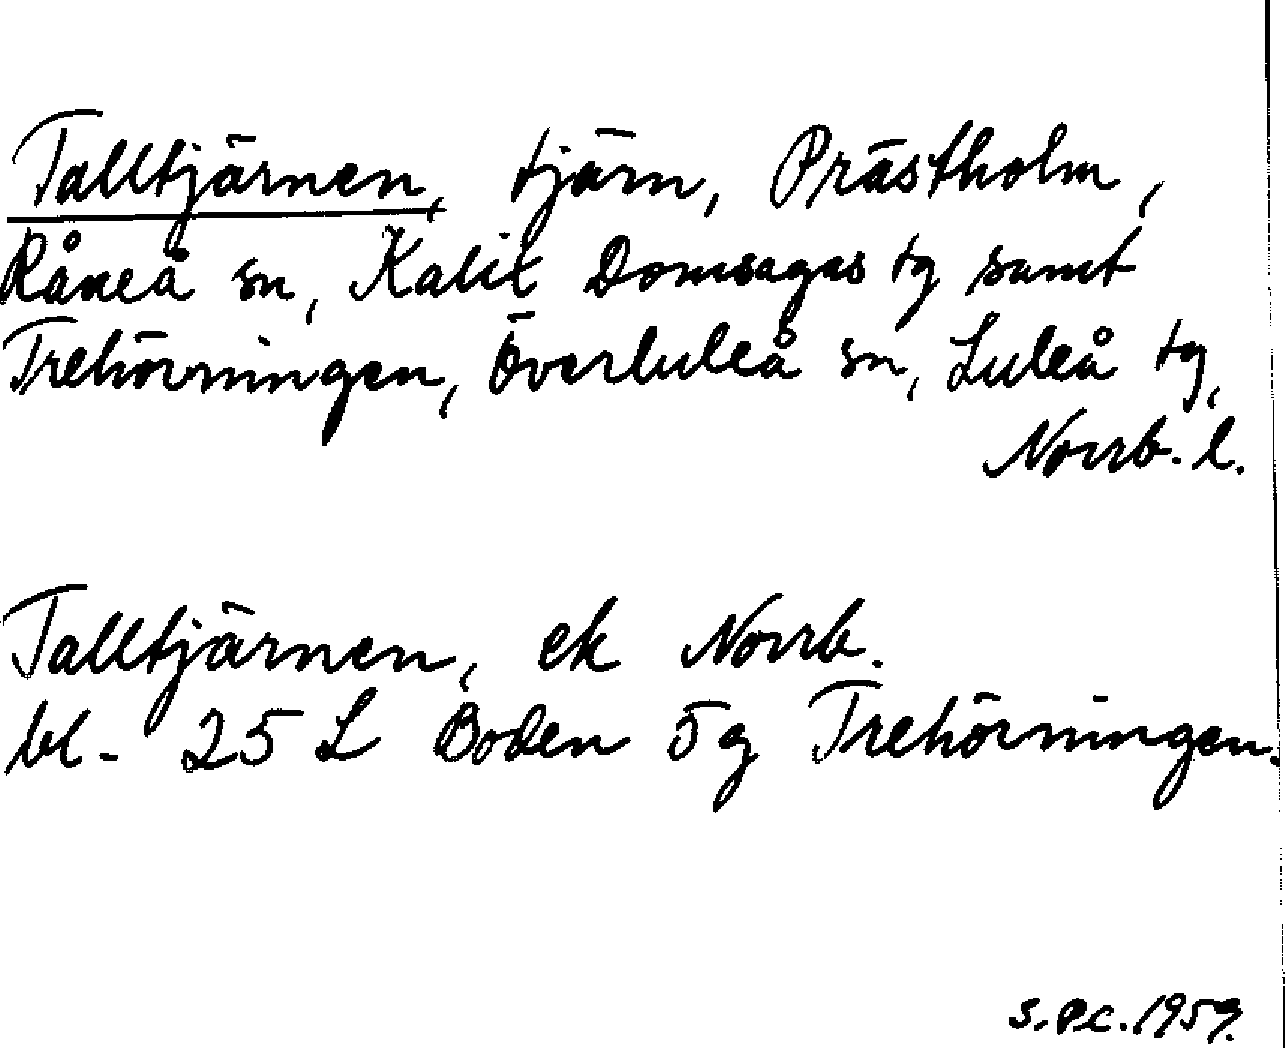 Talltjärnen, tjärn, Prästholm,
Råneå sn, Kalix Domsagas tg samt
Trehörningen, Överluleå sn, Luleå tg,
Norrb. l.
Talltjärnen, ek Norrb.
bl. 25 L Boden 5g Trehörningen.
S.P.C. 1959.